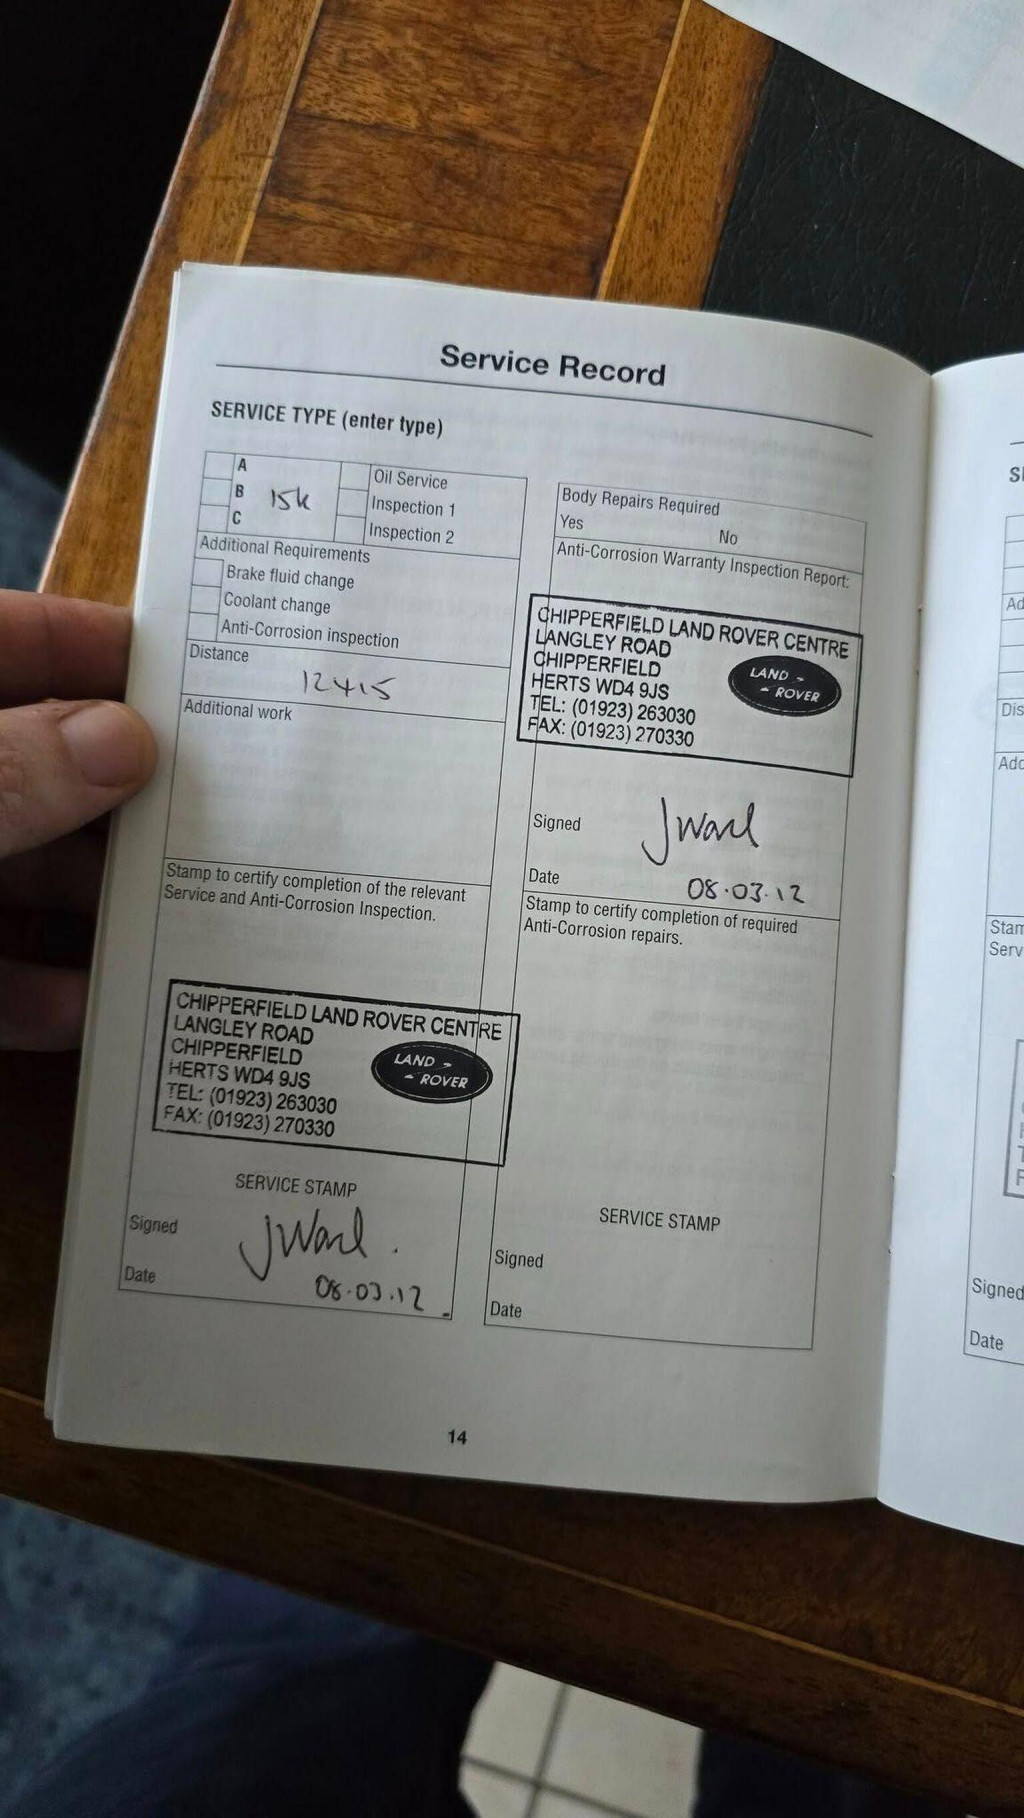 Service Record
SERVICE TYPE (enter type)
A
B 15k
C
Oil Service
Inspection 1
Inspection 2
Additional Requirements
Brake fluid change
Coolant change
Anti-Corrosion inspection
Distance
12415
Additional work
Stamp to certify completion of the relevant
Service and Anti-Corrosion Inspection.
CHIPPERFIELD LAND ROVER CENTRE
LANGLEY ROAD
CHIPPERFIELD
HERTS WD4 9JS
TEL: (01923) 263030
FAX: (01923) 270330
LAND
ROVER
SERVICE STAMP
Signed JWarl
Date 08.03.12
Body Repairs Required
Yes No
Anti-Corrosion Warranty Inspection Report:
CHIPPERFIELD LAND ROVER CENTRE
LANGLEY ROAD
CHIPPERFIELD
HERTS WD4 9JS
TEL: (01923) 263030
FAX: (01923) 270330
LAND
ROVER
Signed JWarl
Date 08.03.12
Stamp to certify completion of required
Anti-Corrosion repairs.
SERVICE STAMP
Signed
Date
14
Signed
Date